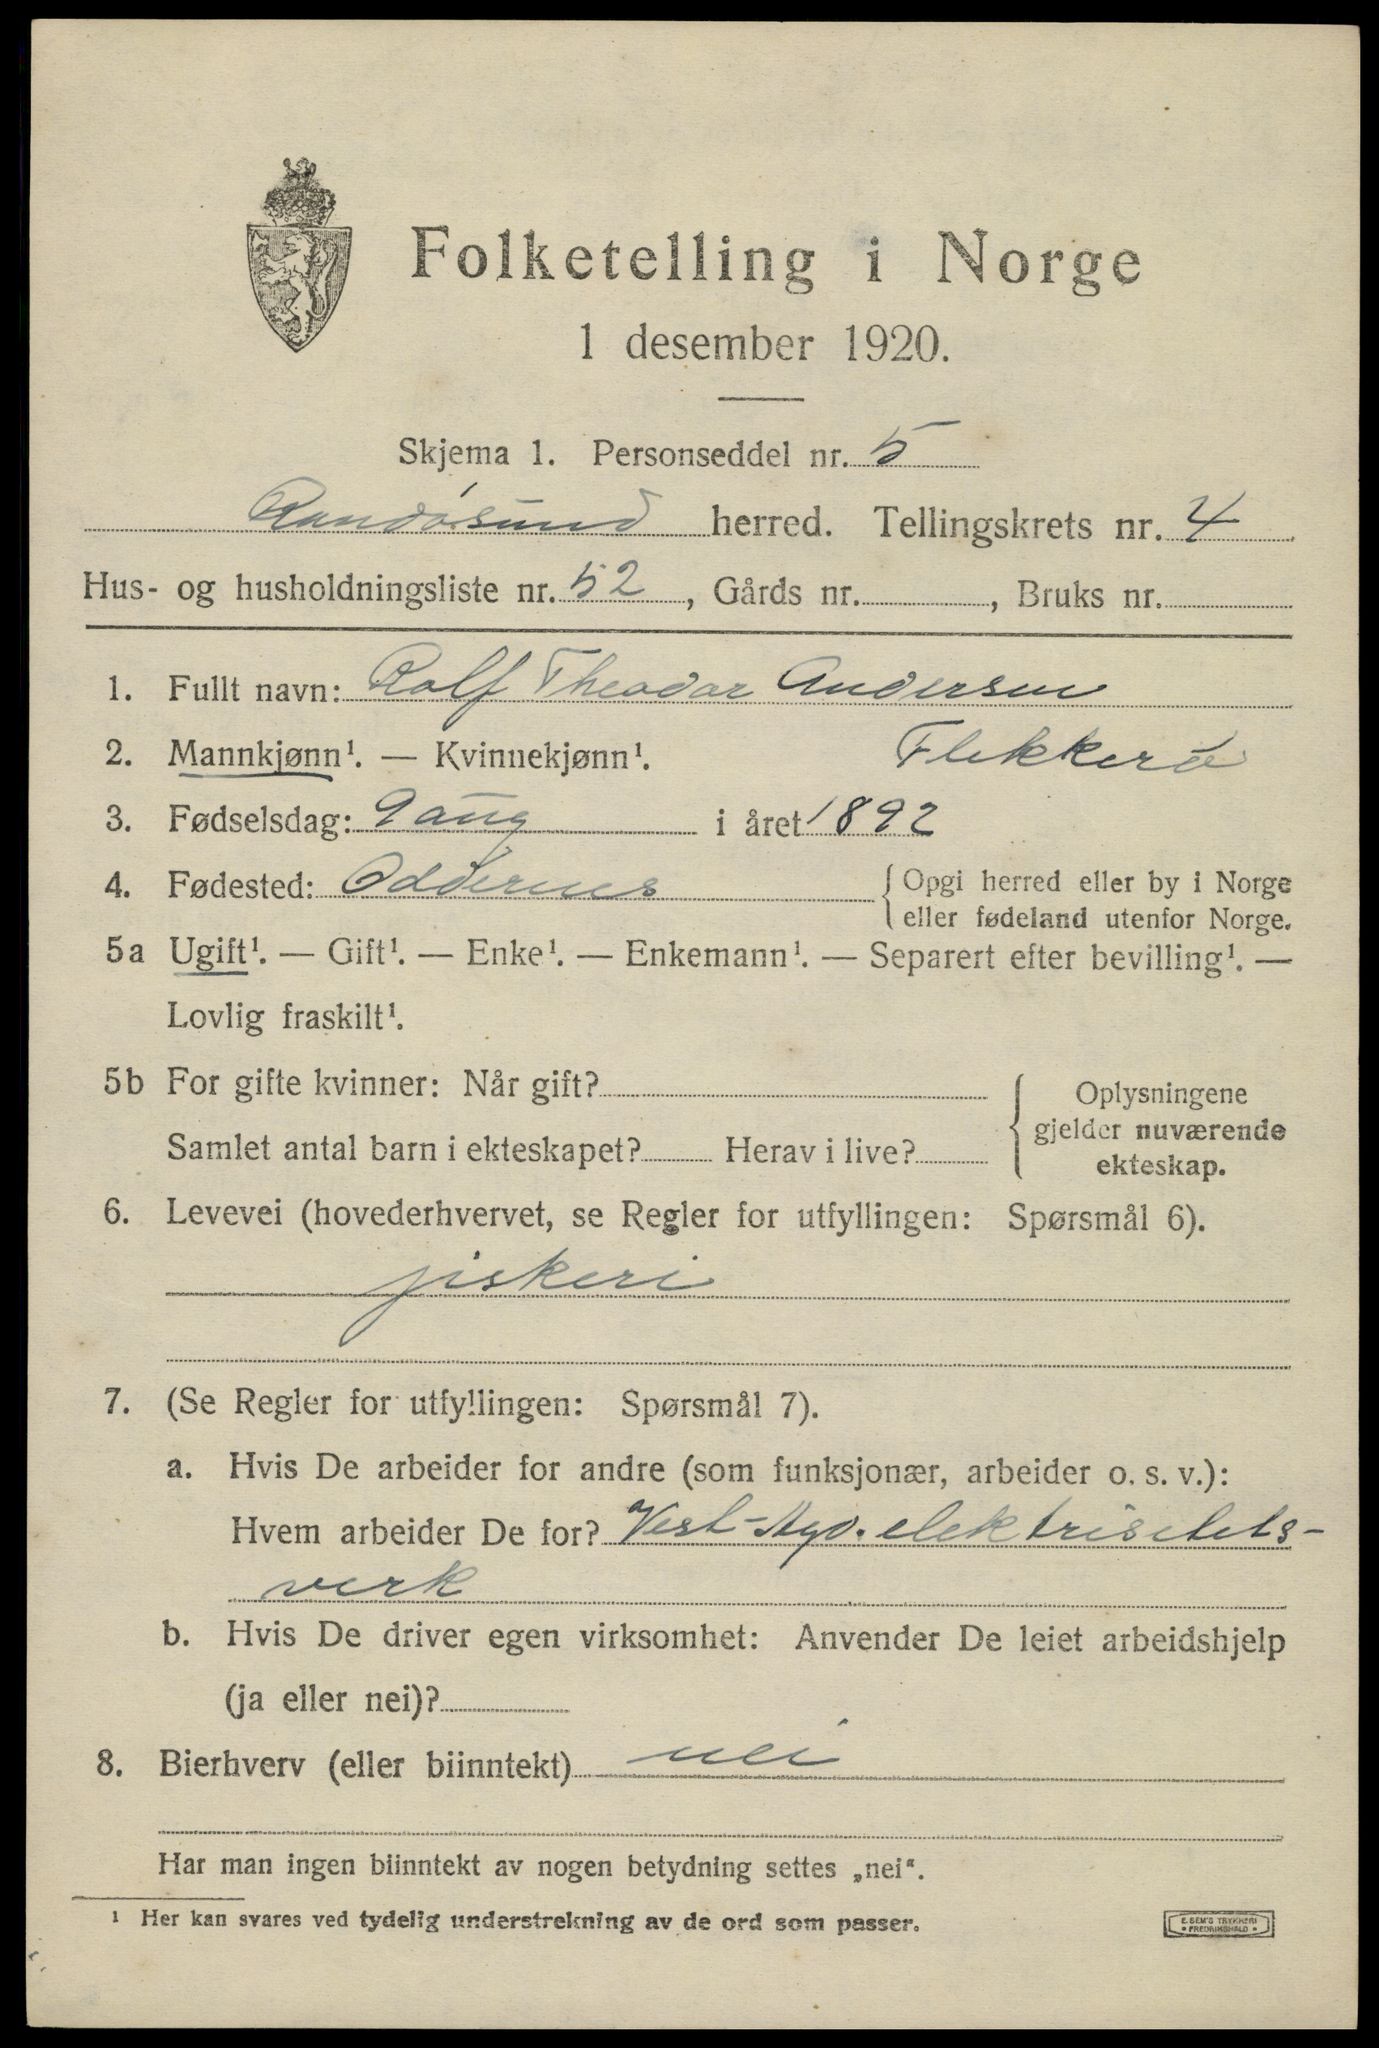 Folketelling i Norge
1 desember 1920.
Skjema 1. Personseddel nr. 5
Randøsund herred. Tellingskrets nr. 4
Hus- og husholdningsliste nr. 52, Gårds nr. , Bruks nr.
1. Fullt navn: Rolf Theodor Andersen
2. Mannkjønn¹. — Kvinnekjønn¹. Flekkerø
3. Fødselsdag: 9 aug i året 1892
4. Fødested: Oddernes { Opgi herred eller by i Norge
eller fødeland utenfor Norge.
5a Ugift¹. — Gift¹. — Enke¹. — Enkemann¹. — Separert efter bevilling¹. —
Lovlig fraskilt¹.
5b For gifte kvinner: Når gift? { Oplysningene
gjelder nuværende
Samlet antal barn i ekteskapet? Herav i live? ekteskap.
6. Levevei (hovederhvervet, se Regler for utfyllingen: Spørsmål 6).
fiskeri
7. (Se Regler for utfyllingen: Spørsmål 7).
a. Hvis De arbeider for andre (som funksjonær, arbeider o. s. v.):
Hvem arbeider De for? Vest-Agd. elektrisitets-
verk
b. Hvis De driver egen virksomhet: Anvender De leiet arbeidshjelp
(ja eller nei)?
8. Bierhverv (eller biinntekt) nei
Har man ingen biinntekt av nogen betydning settes „nei“.
¹ Her kan svares ved tydelig understrekning av de ord som passer.
E. SEM'S TRYKKERI
• FREDRIKSHALD •